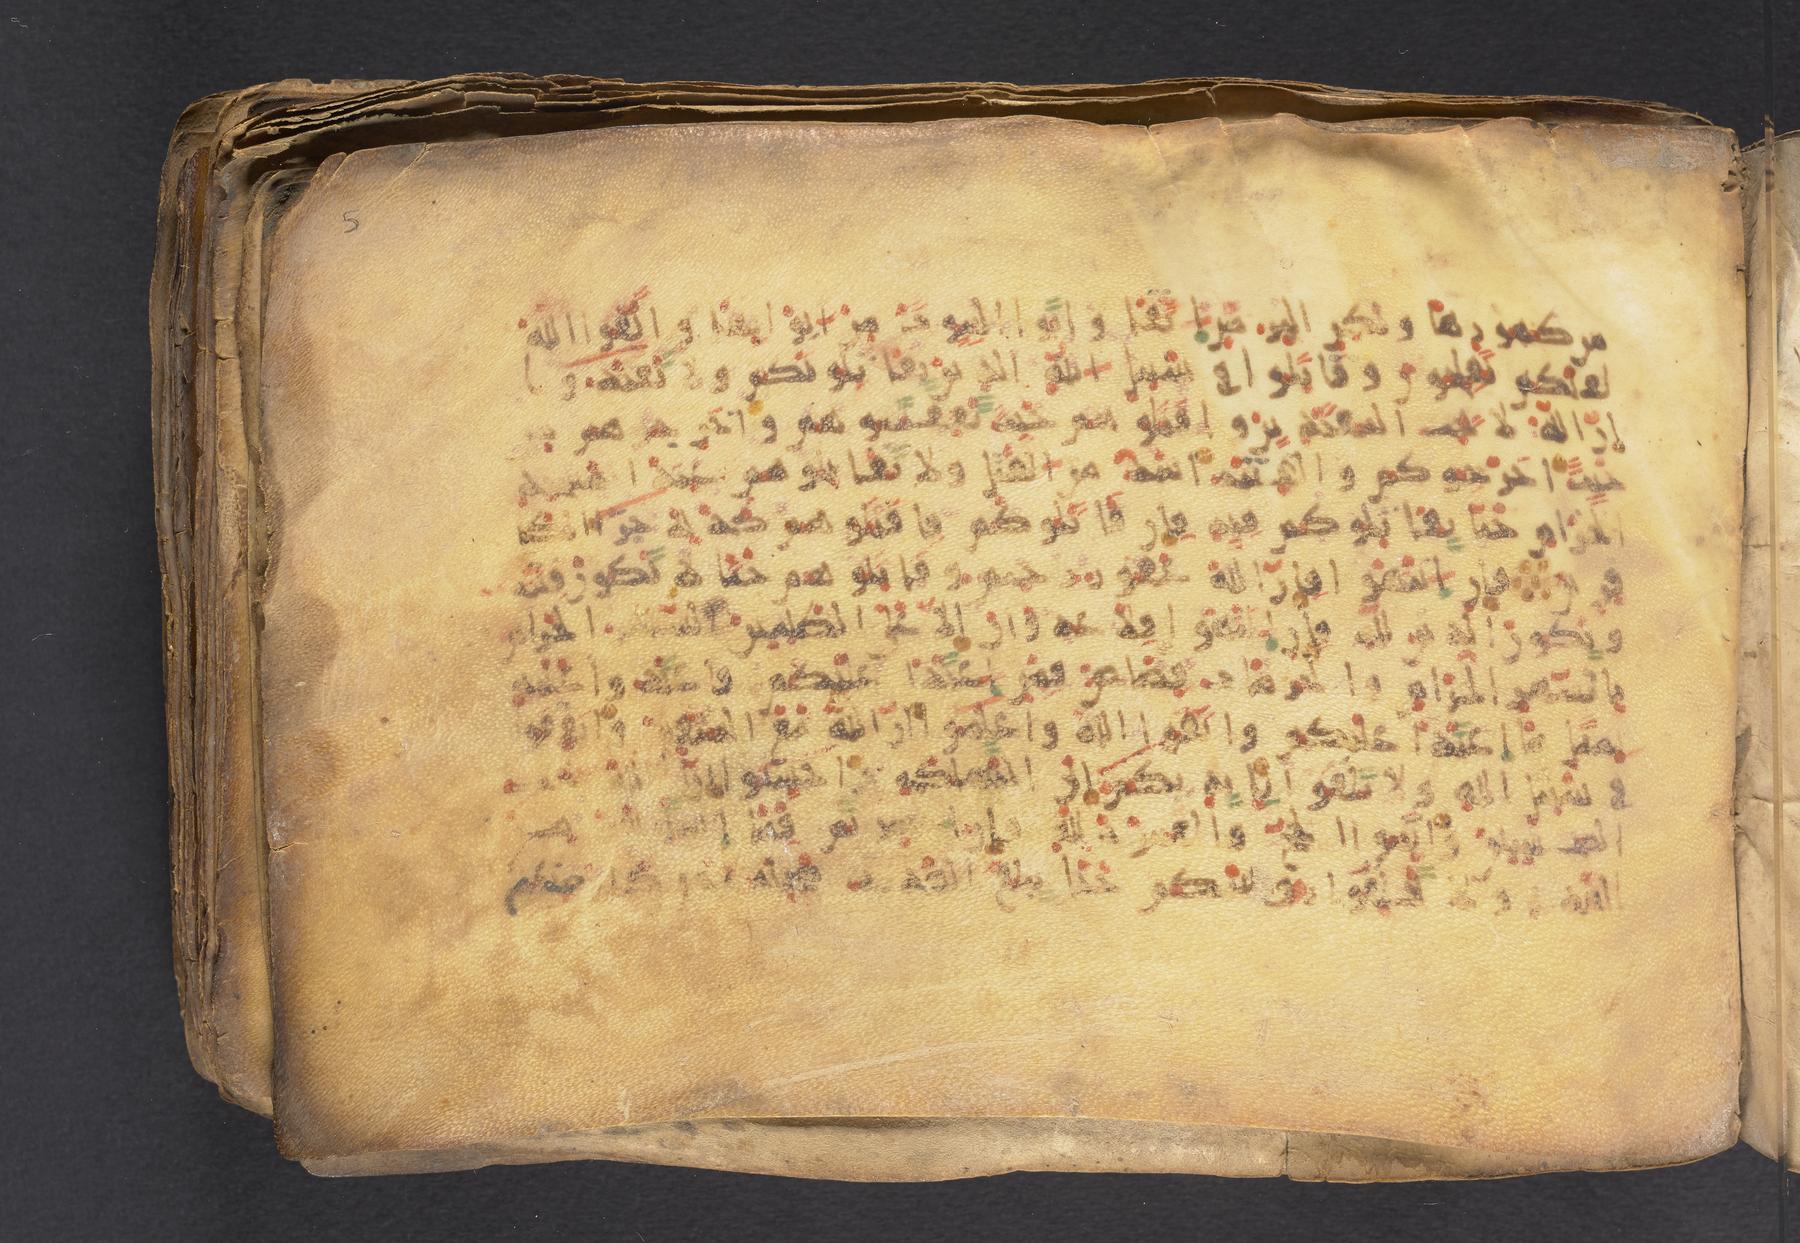 5
من ظهورها ولكن البر من اتقا واتوا البيوت من ابوابها واتقوا الله
لعلكم تفلحون وقاتلوا في سبيل الله الذين يقاتلونكم ولا تعتدوا
ان الله لا يحب المعتدين واقتلوهم حيث ثقفتموهم واخرجوهم من
حيث اخرجوكم والفتنة اشد من القتل ولا تقاتلوهم عند المسجد
الحرام حتا يقاتلوكم فيه فان قاتلوكم فاقتلوهم كذلك جزا الكا
فرين فان انتهوا فان الله غفور رحيم وقاتلوهم حتا لا تكون فتنة
ويكون الدين لله فان انتهوا فلا عدوان الا علا الظلمين الشهر الحرام
بالشهر الحرام والحرمات قصاص فمن اعتدا عليكم فاعتدوا عليه
بمثل ما اعتدا عليكم واتقوا الله واعلموا ان الله مع المتقين وانفقوا
في سبيل الله ولا تلقوا بايديكم الى التهلكة واحسنوا ان الله يحب
المحسنين واتموا الحج والعمرة لله فان احصرتم فما استيسر من
الهدي ولا تحلقوا روسكم حتا يبلغ الهدي محله فمن كان منكم